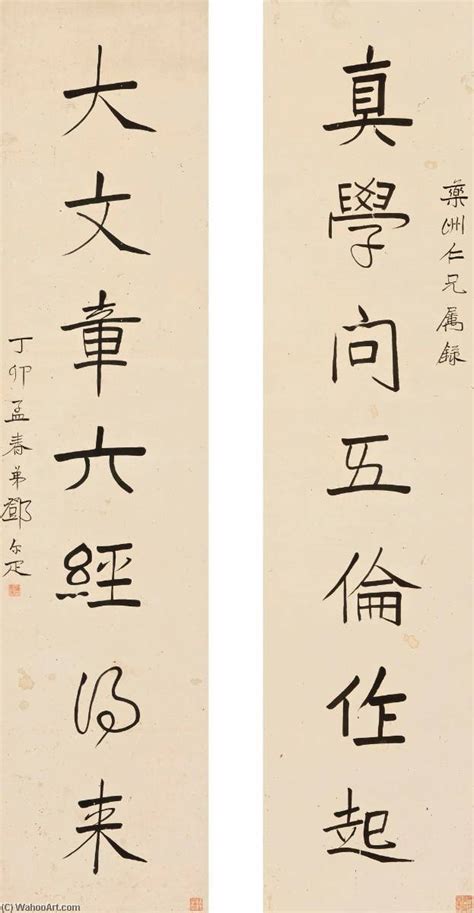 藥洲仁兄属錄
真學问五倫作起
大文章六經得来
丁卯孟春弟鄧尔疋
(C) WahooArt.com